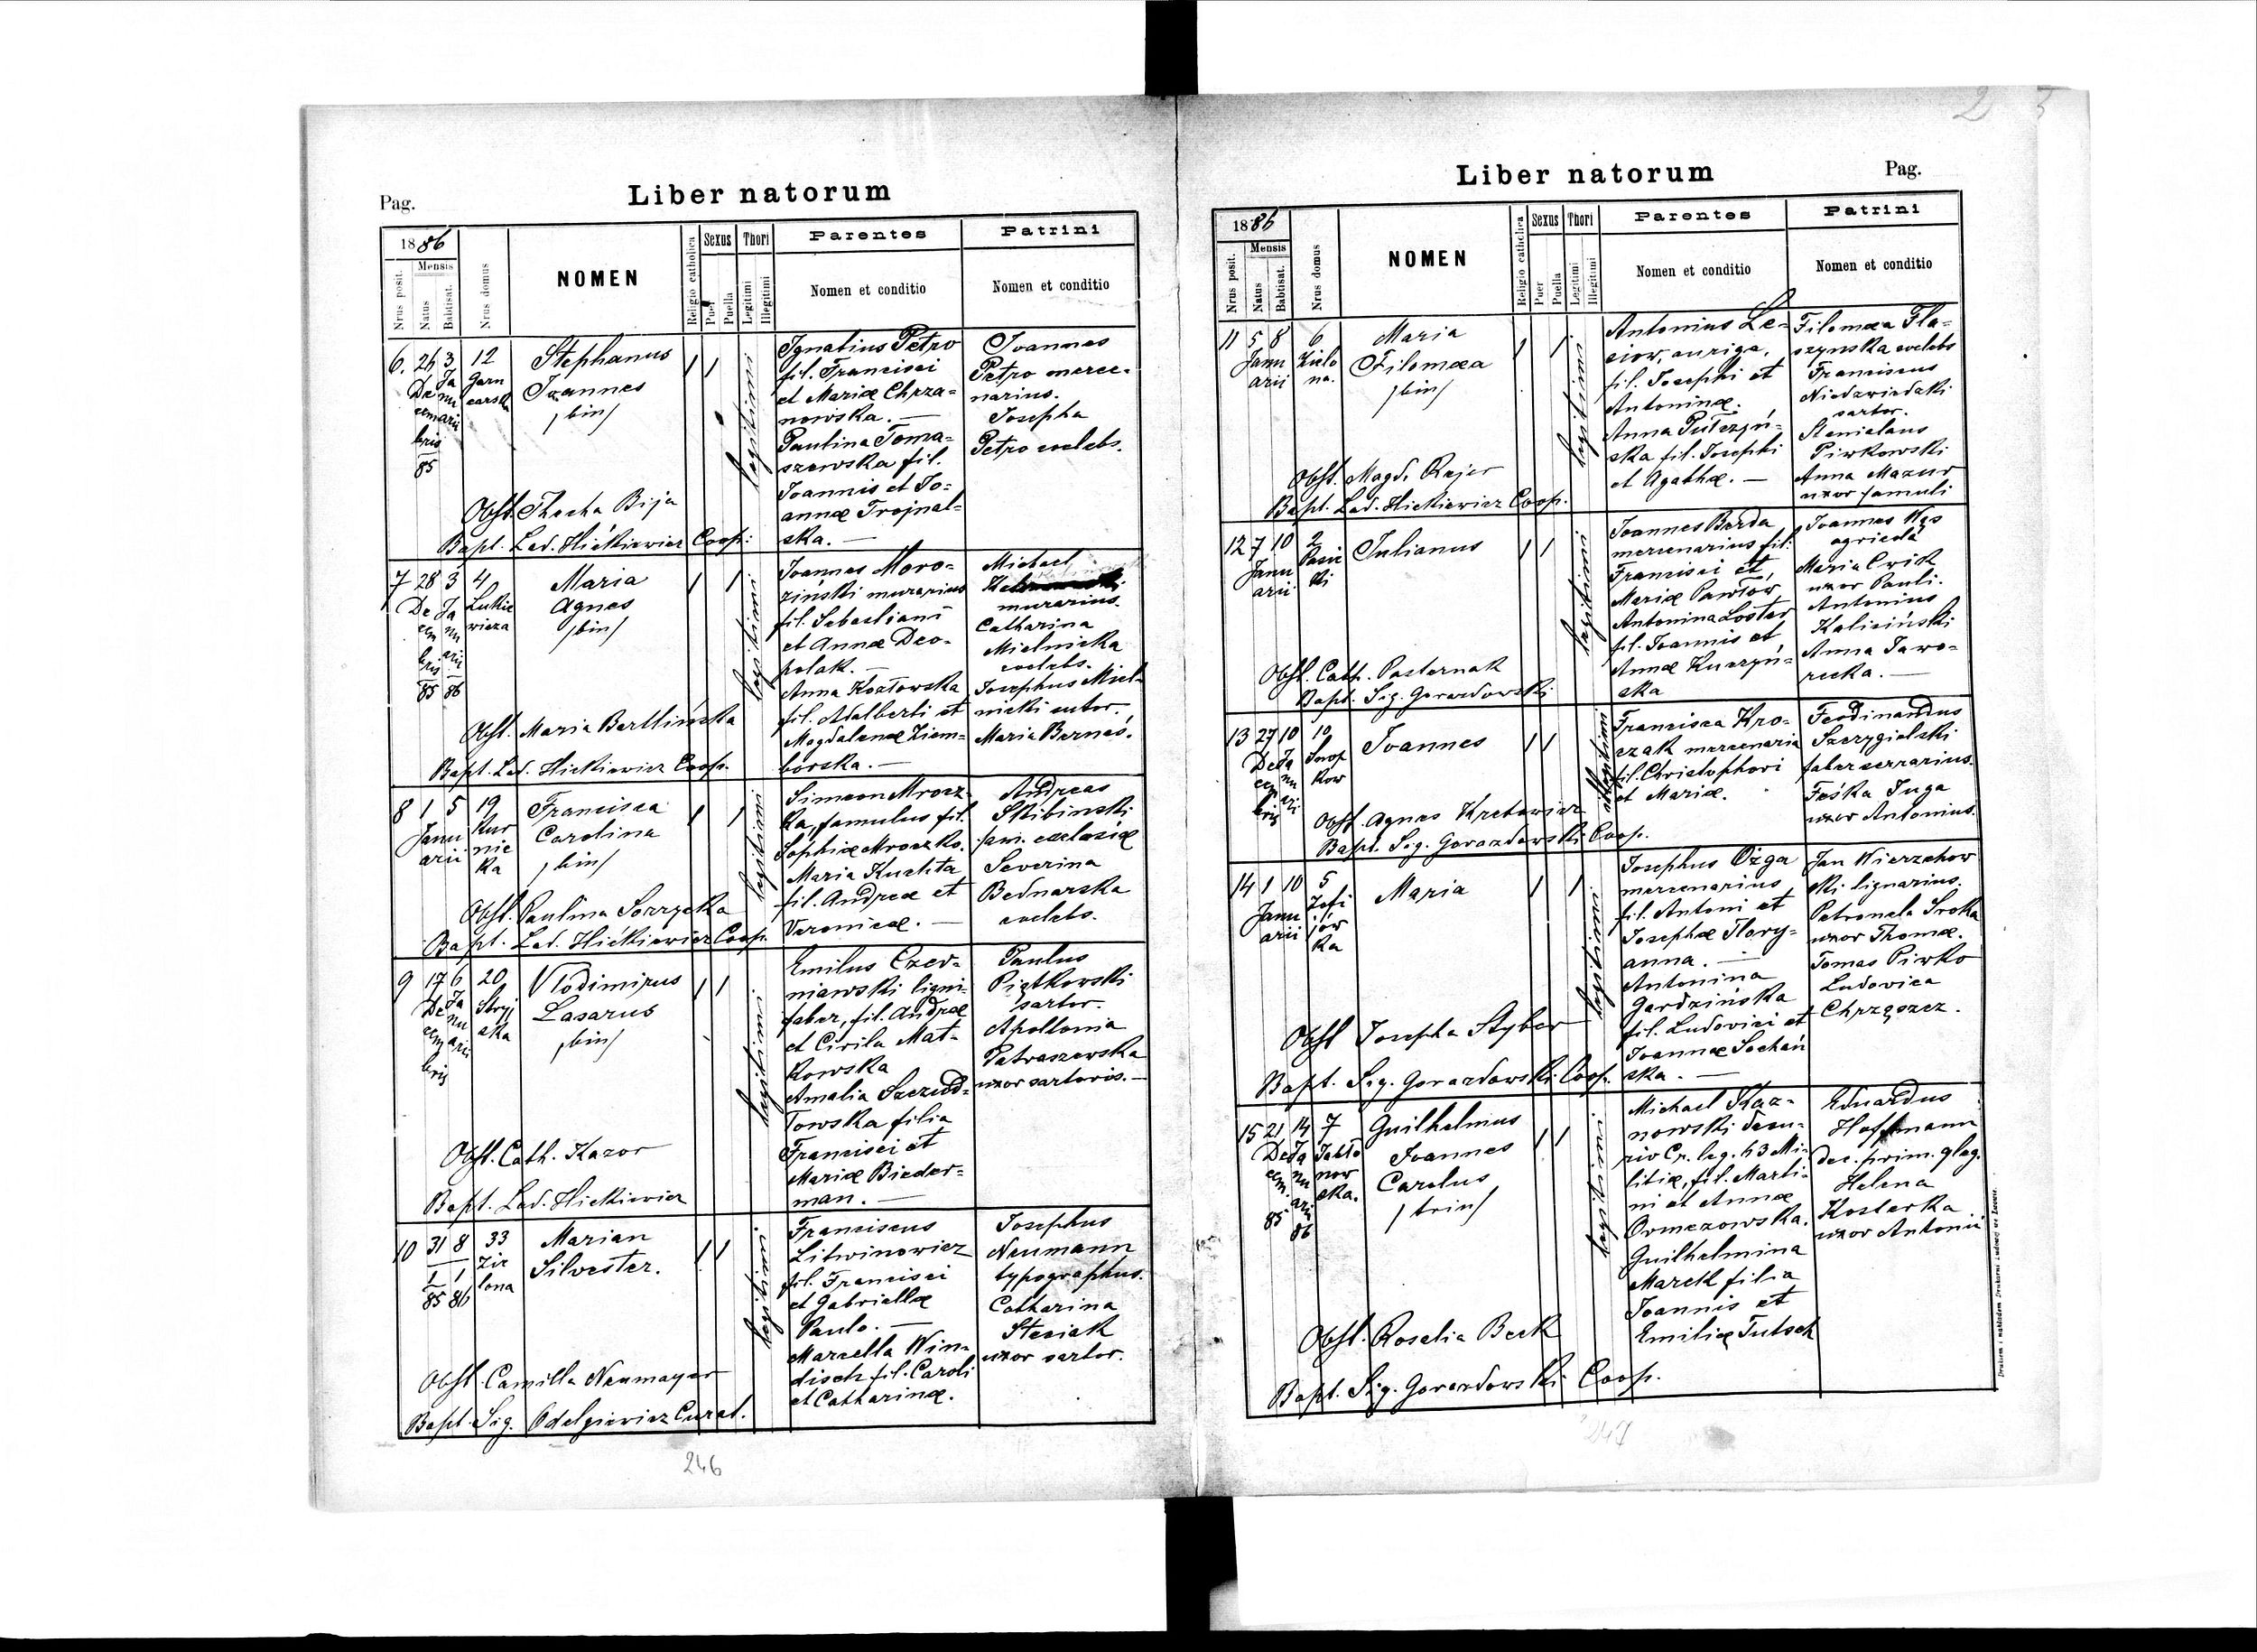 Pag.
Liber natorum
1886
Nrus posit.
Mensis
Natus
Babtisat.
Nrus domus
NOMEN
Religio catholica
Sexus
Puer
Puella
Thori
Legitimi
Illegitimi
Parentes
Nomen et conditio
Patrini
Nomen et conditio
6. 26 3 12
De Ja Garn
cem nu carska
arii
bris
85
Stephanus
Joannes
/bin/
legitimi
Ignatius Petro
fil. Francisci
et Mariæ Chrza=
nowska. —
Paulina Toma=
szewska fil.
Joannis et Jo=
annæ Trojnal=
ska. —
Joannes
Petro merce-
narius.
Josepha
Petro coelebs.
Obst. Thecha Bija
Bapt. Lad. Hićkiewicz Coop.
7 28 3 4
De Ja Lukie
cem nu wicza
bris arii
85 86
Maria
Agnes
/bin/
legitimi
Joannes Moro=
ziński murarius
fil. Sebastiani
et Annæ Deo-
polak. —
Anna Kozłowska
fil. Adalberti et
Magdalenæ Ziem=
borska. —
Michael
murarius.
Catharina
Mielnicka
coelebs.
Josephus Miel=
nicki sutor.
Maria Bernaś.
Obst. Maria Bertlińska
Bapt. Lad. Hickiewicz Coop.
8 1 5 19
Janu Kur
arii nic
ka
Francisca
Carolina
/bin/
legitimi
Simeon Mrocz=
ka, famulus fil.
Sophiæ Mroczko.
Maria Kuchta
fil. Andreæ et
Veronicæ. —
Andreas
Skibinski
fam. ecclesiæ
Severina
Bednarska
coelebs.
Obst. Paulina Sorzycka
Bapt. Lad. Hićkiewicz Coop.
9 17 6 20
De Ja Stryj
cem nu ska
bris arii
Vlodimirus
Lasarus
/bin/
legitimi
Emilus Czer=
niawski ligni=
faber, fil. Andreæ
et Cirila Mat=
kowska
Amalia Szczud=
łowska filia
Francisci et
Mariæ Bieder=
man. —
Paulus
Piątkowski
sartor.
Apollonia
Petraszewska
uxor sartoris. —
Obst. Cath. Kazor
Bapt. Lad. Hickiewicz
10 31 8 33
1 1 Zie
85 86 lona
Marian
Silvester.
legitimi
Franciscus
Litwinowicz
fil. Francisci
et Gabriellæ
Paulo. —
Marcella Win=
disch fil. Caroli
et Catharinæ.
Josephus
Neumann
typographus.
Catharina
Stesiak
uxor sartor.
Obst. Camilla Neumayer
Bapt. Sig. Odelgiewicz Curat.
246
Liber natorum
Pag.
1886
Nrus posit.
Mensis
Natus
Babtisat.
Nrus domus
NOMEN
Religio catholica
Sexus
Puer
Puella
Thori
Legitimi
Illegitimi
Parentes
Nomen et conditio
Patrini
Nomen et conditio
11 5 8 6
Janu Zielo
arii na.
Maria
Filomæa
/bin/
legitimi
Antonius Le=
siow, auriga,
fil. Josephi et
Antoninæ.
Anna Pułczyń=
ska fil. Josephi
et Agathæ. —
Filomæa Fla=
szynska coelebs
Franciscus
Niedzwiedzki
sartor.
Stanislaus
Pirkowski
Anna Mazur
uxor famuli
Obst. Magd. Rejer
Bapt. Lad. Hickiewicz Coop.
12 7 10 2
Janu Pasie
arii ki
Julianus
legitimi
Joannes Berda
mercenarius fil:
Francisci et
Mariæ Pawłow,
Antonina Loster
fil. Joannis et
Annæ Kuczyń=
ska
Joannes Wąs
agricola
Maria Cwik
uxor Pauli.
Antonius
Kaliciński
Anna Jawo=
recka. —
Obst. Cath. Pasternak
Bapt. Sig. Gorazdowski
13 27 10 10
De Ja Snop
cem nu kow
bris ari
Joannes
illegitimi
Francisca Kro=
czak mercenaria
fil. Christophori
et Mariæ.
Ferdinandus
Szczygielski
faber serrarius.
Feśka Juga
uxor Antonius.
Obst. Agnes Kretowicz
Bapt. Sig. Gorazdowski Coop.
14 1 10 5
Janu Zofi
arii jów
ka
Maria
legitimi
Josephus Ożga
mercenarius
fil. Antoni et
Josephæ Flory=
anna. —
Antonina
Gardzińska
fil. Ludovici et
Joannæ Sochań
ska. —
Jan Wierzchow
ski lignarius.
Petronela Sroka
uxor Thomæ.
Tomas Pirko
Ludovica
Chrząszcz.
Obst Josepha Styber
Bapt. Sig. Gorazdowski Coop.
15 21 14 7
De Ja Jabło
cem nu now
ari ska.
85 86
Guilhelmus
Joannes
Carolus
/trin/
legitimi
Michael Kaz=
nowski
Cp. leg. 63 Mi=
litiæ, fil. Marti=
ni et Annæ
Ormezowska.
Guilhelmina
Marek filia
Joannis et
Emiliæ Tutsch
Eduardus
Hoffmann
dec. prim. gleg.
Helena
Kosterka
uxor Antonii
Obst. Rosalia Berk
Bapt. Sig. Gorazdowski Coop.
247